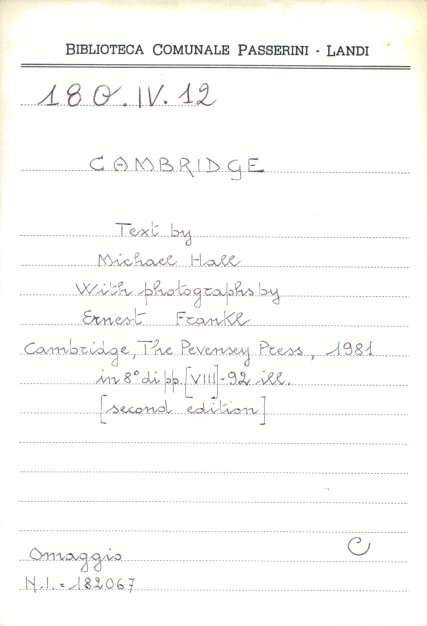 BIBLIOTECA COMUNALE PASSERINI - LANDI
180.IV.12
CAMBRIDGE
Text by
Michael Hall
With photographs by
Ernest Frankl
Cambridge, The Pevensey Press, 1981
in 8° di pp. [VIII]-92 ill.
[second edition]
C
Omaggio
N.I. = 182067